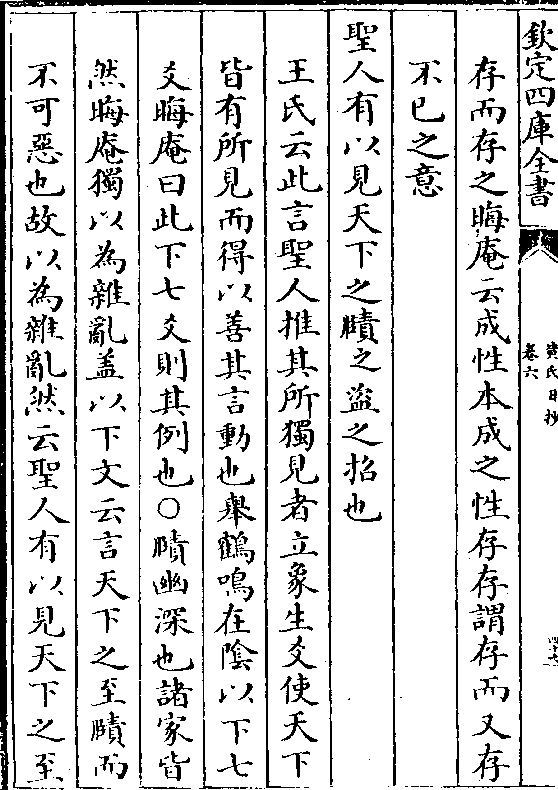 欽定四庫全書
黄氏日抄
卷六
存而存之晦庵云成性本成之性存存謂存而又存
不已之意
聖人有以見天下之賾之盜之招也
王氏云此言聖人推其所獨見者立象生爻使天下
皆有所見而得以善其言動也舉鶴鳴在陰以下七
爻晦庵曰此下七爻則其例也○賾幽深也諸家皆
然晦庵獨以為雜亂盖以下文云言天下之至賾而
不可惡也故以為雜亂然云聖人有以見天下之至